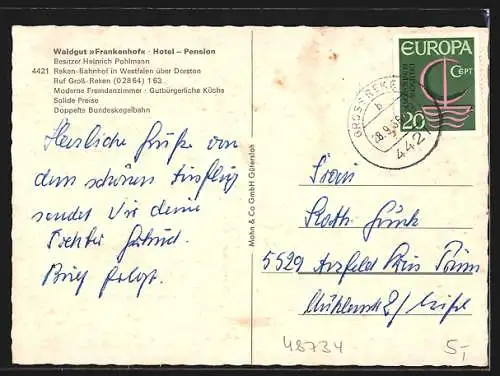 Waldgut »Frankenhof« · Hotel – Pension
Besitzer Heinrich Pohlmann
4421 Reken-Bahnhof in Westfalen über Dorsten
Ruf Groß-Reken (02864) 163
Moderne Fremdenzimmer · Gutbürgerliche Küche
Solide Preise
Doppelte Bundeskegelbahn
Herzliche Grüße von
dem schönen Ausflug
sendet Dir deine
Tochter
Brief folgt.
Mohn & Co GmbH Gütersloh
EUROPA
CEPT
20
GROSS REKEN
b
442
Frau
Kath.
5529 Arzfeld Kreis Prüm
Eifel
48734
5,-